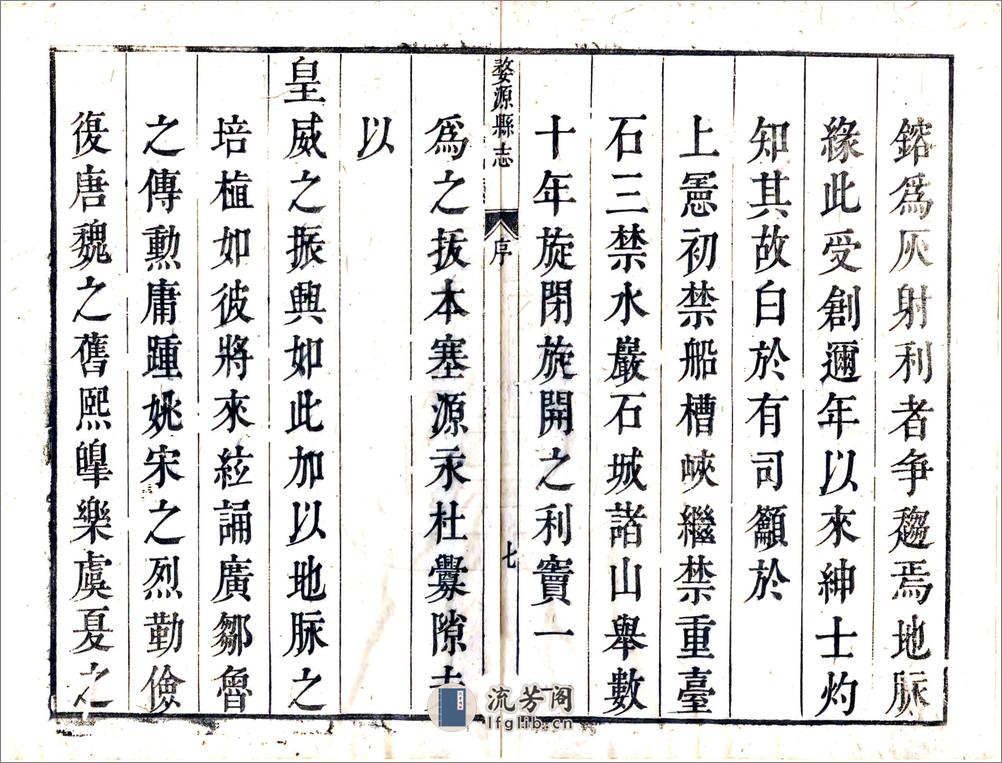 鎔爲灰射利者爭趨焉地脈
緣此受創邇年以來紳士灼
知其故白於有司籲於
上憲初禁船槽峽繼禁重臺
石三禁水巖石城諸山舉數
十年旋閉旋開之利竇一
婺源縣志
序
七
爲之拔本塞源永杜釁隙
以
皇威之振興如此加以地脈之
培植如彼將來絃誦廣鄒魯
之傳勳庸踵姚宋之烈勤儉
復唐魏之舊熙皥樂虞夏之
流芳阁
lfglib.cn